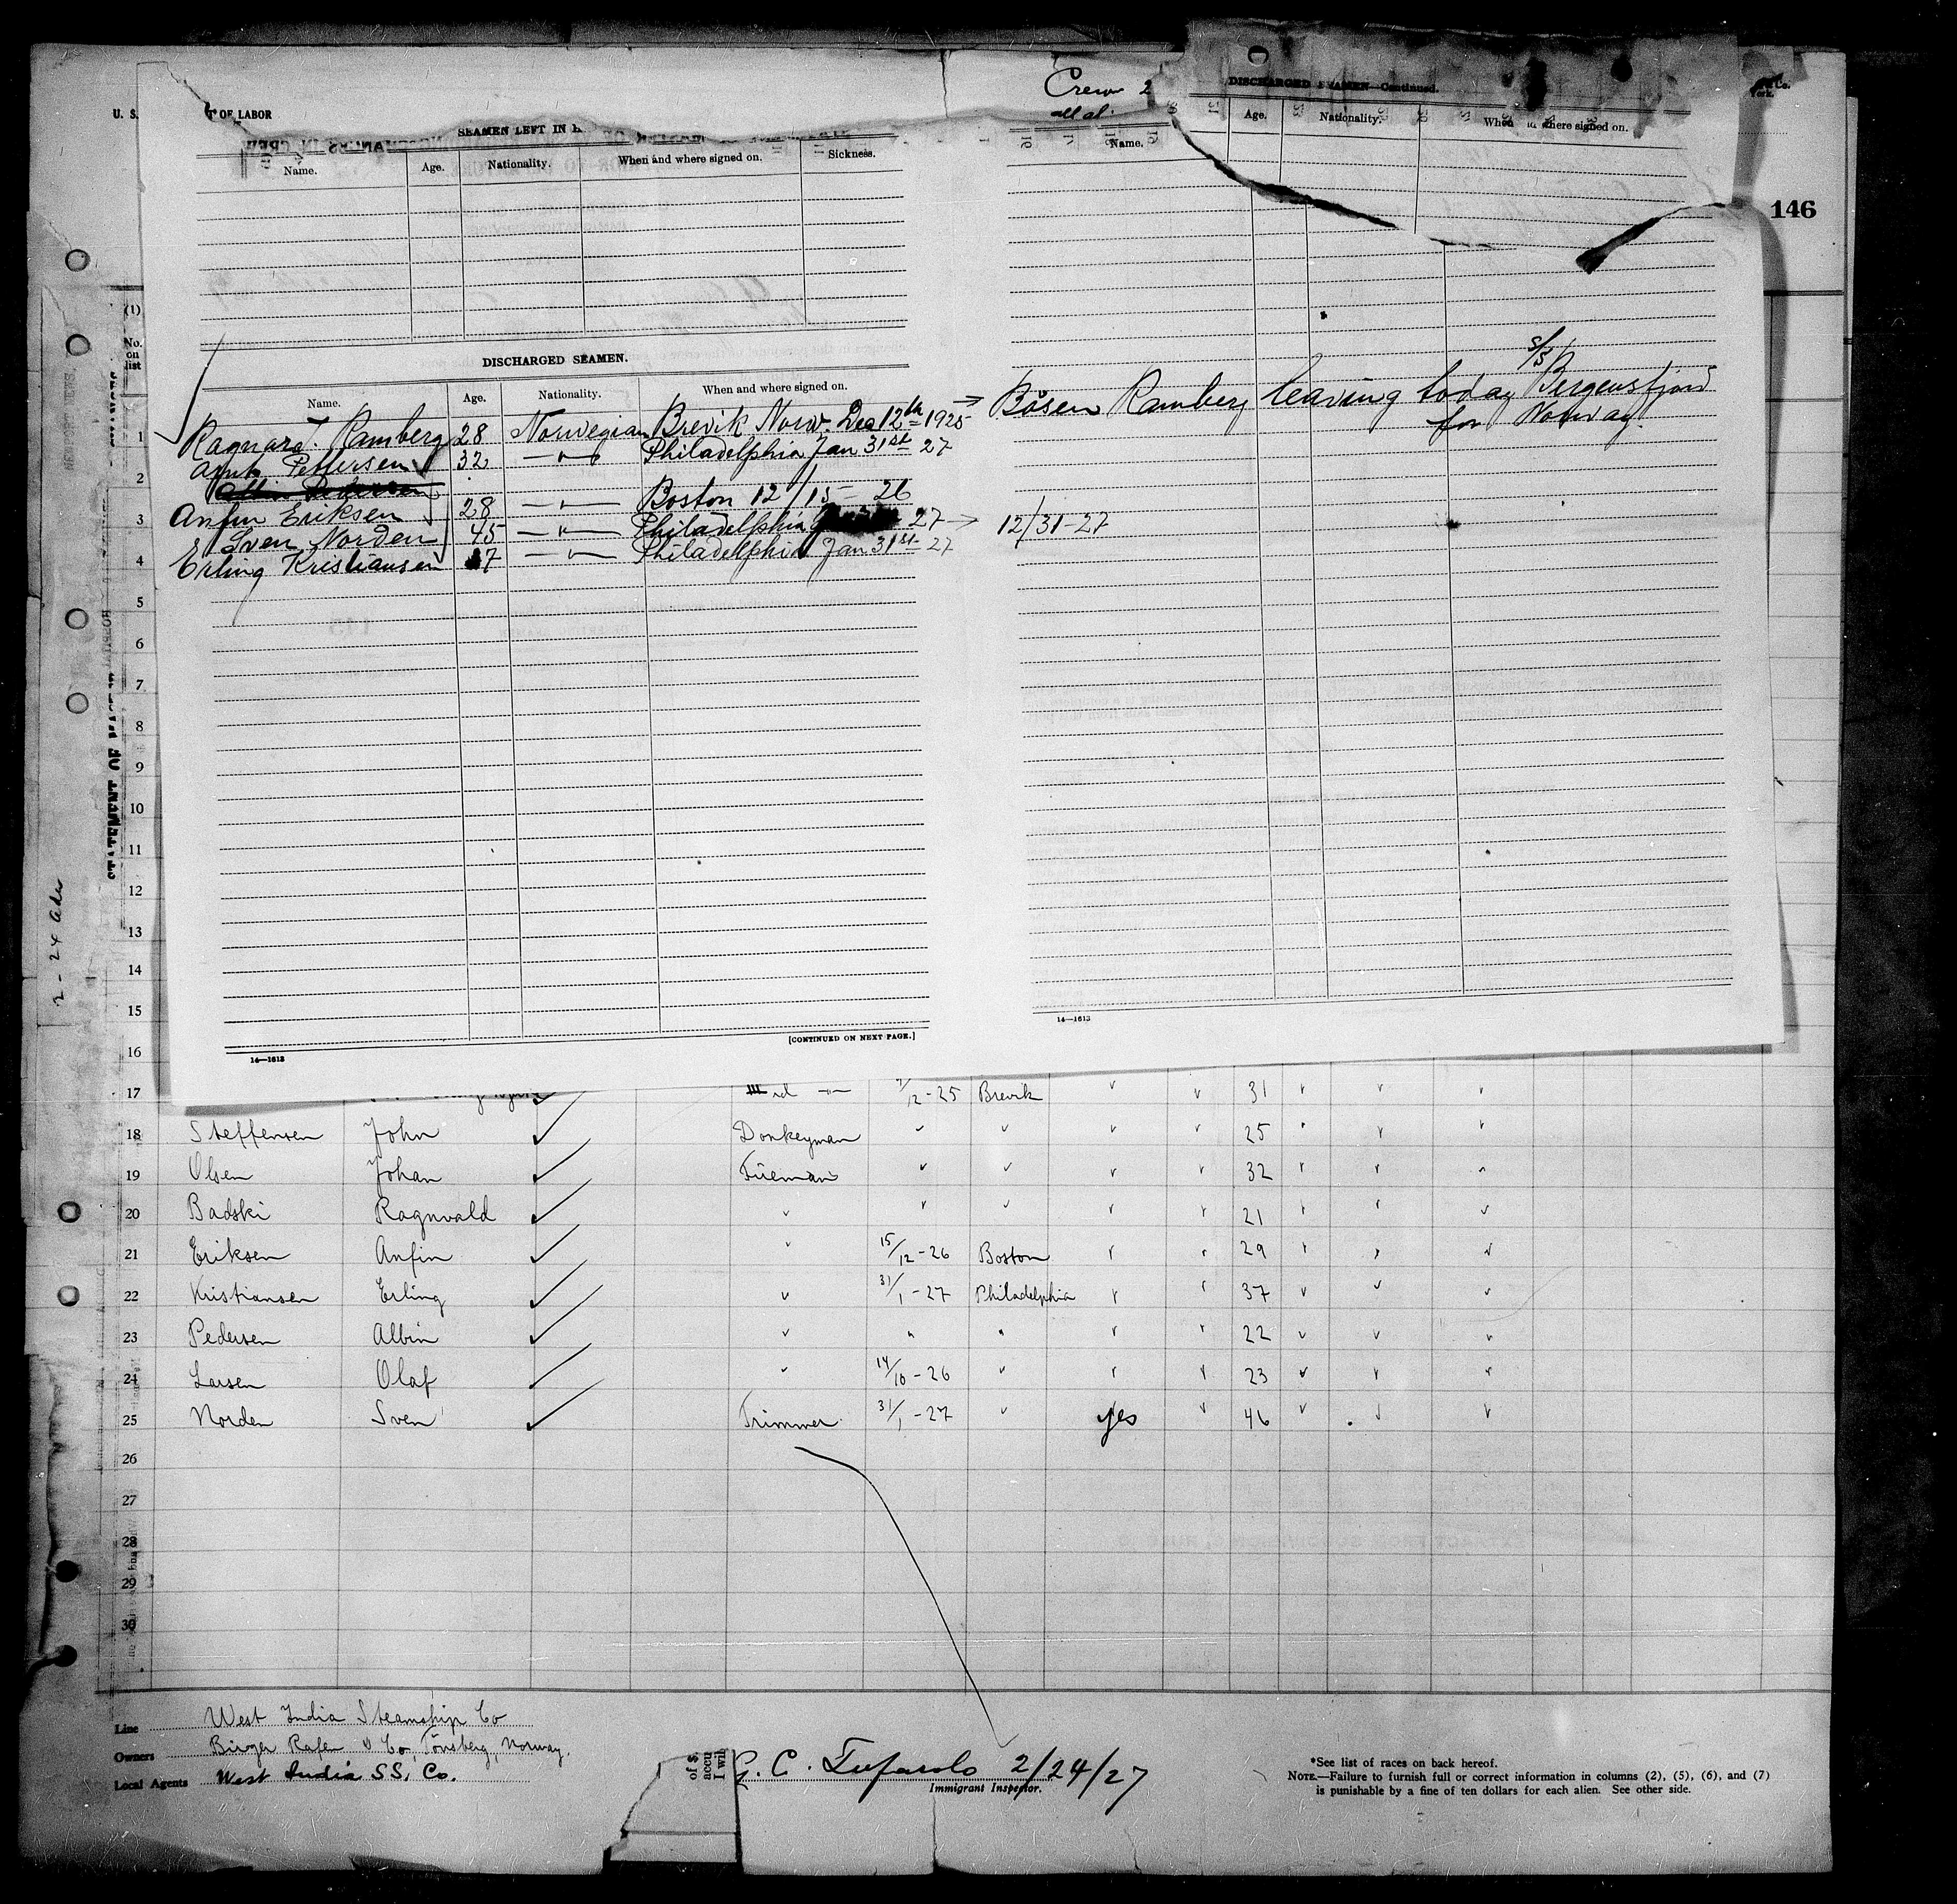 146
U. S.
T OF LABOR
Crew 2
SEAMEN LEFT IN H
Name. Age. Nationality. When and where signed on. Sickness.
DISCHARGED SEAMEN.
Name. Age. Nationality. When and where signed on.
Ragnard J. Ramberg 28 Norwegian Brevik Norw. Dec 12th 1925
Pettersen 32 —〃— Philadelphia Jan 31st 27
Anfin Eriksen 28 —〃— Boston 12/15- 26
Sven Norden 45 —〃— Philadelphia 27 →
Erling Kristiansen 37 —〃— Philadelphia Jan 31st 27
[CONTINUED ON NEXT PAGE.]
14—1613
DISCHARGED SEAMEN—Continued.
Name. Age. Nationality. When and where signed on.
→ Bösen Ramberg leaving today s/s Bergensfjord
for Norway.
12/31-27
14—1613
(1)
No. on list
1
2
3
4
5
6
7
8
9
10
11
12
13
14
15
16
17 12-25 Brevik 31
18 Steffensen John Donkeyman 25
19 Olsen Johan Fireman 32
20 Badski Ragnvald 21
21 Eriksen Anfin 15/12-26 Boston 29
22 Kristiansen Erling 31/1-27 Philadelphia 37
23 Pedersen Albin 〃 〃 22
24 Larsen Olaf 14/10-26 23
25 Norden Sven Trimmer 31/1-27 yes 46
26
27
28
29
30
Line West India Steamship Co
Owners Birger Rafen & Co, Tönsberg, Norway.
Local Agents West India SS. Co.
of S.
accu
I wil
2/24/27
Immigrant Inspector.
*See list of races on back hereof.
NOTE.—Failure to furnish full or correct information in columns (2), (5), (6), and (7)
is punishable by a fine of ten dollars for each alien. See other side.